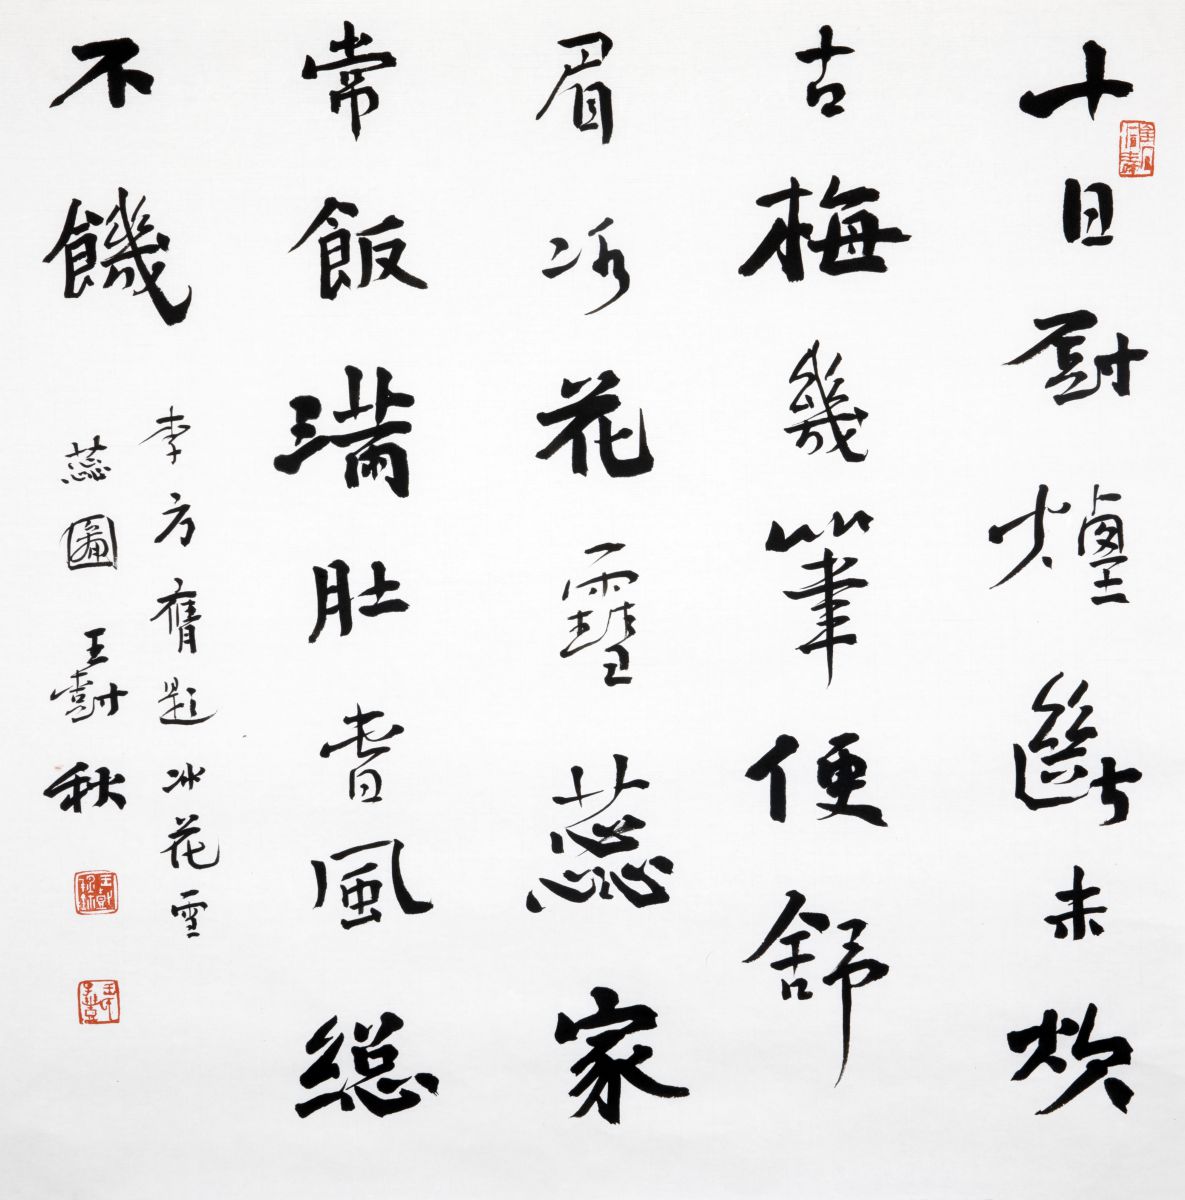 十日厨爐斷未炊
古梅幾筆便舒
眉冰花雪蕊家
常飯滿肚春風總
不饑
李方膺題冰花雪
蕊圖王尌秋